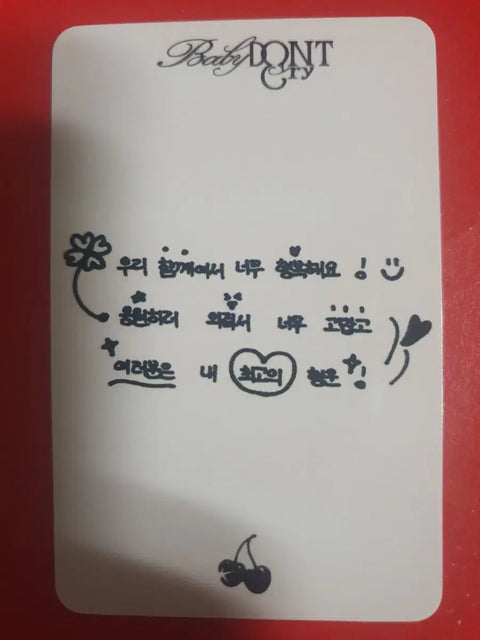 Baby DONT Cry
우리 함께여서 너무 행복해요 !
응원하러 와줘서 너무 고맙고
여러분은 내 최고의 행운 !